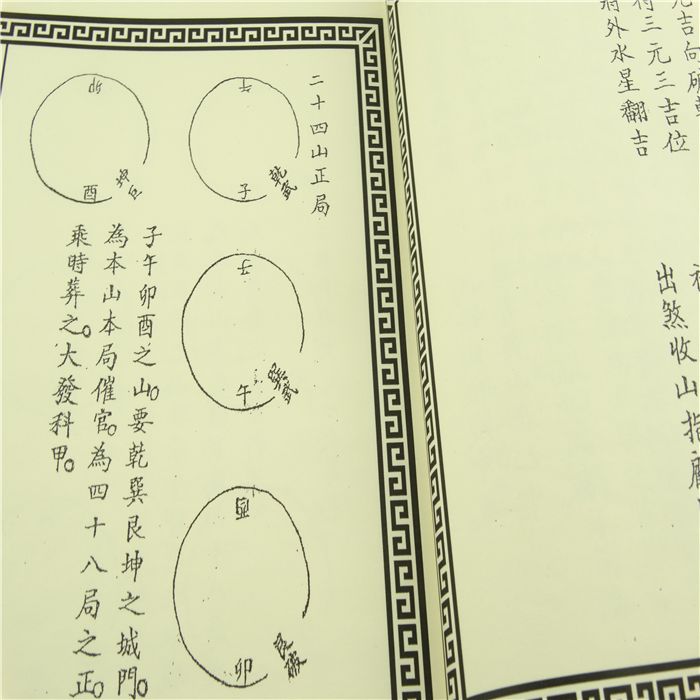 吉向
三元三吉位
外水星翻吉
出煞收山指
二十四山正局
午
子
乾武
子
午
巽武
酉
卯
艮破
卯
酉
子午卯酉之山。要乾巽艮坤之城門。
為本山本局催官。為四十八局之正。
乘時葬之。大發科甲。